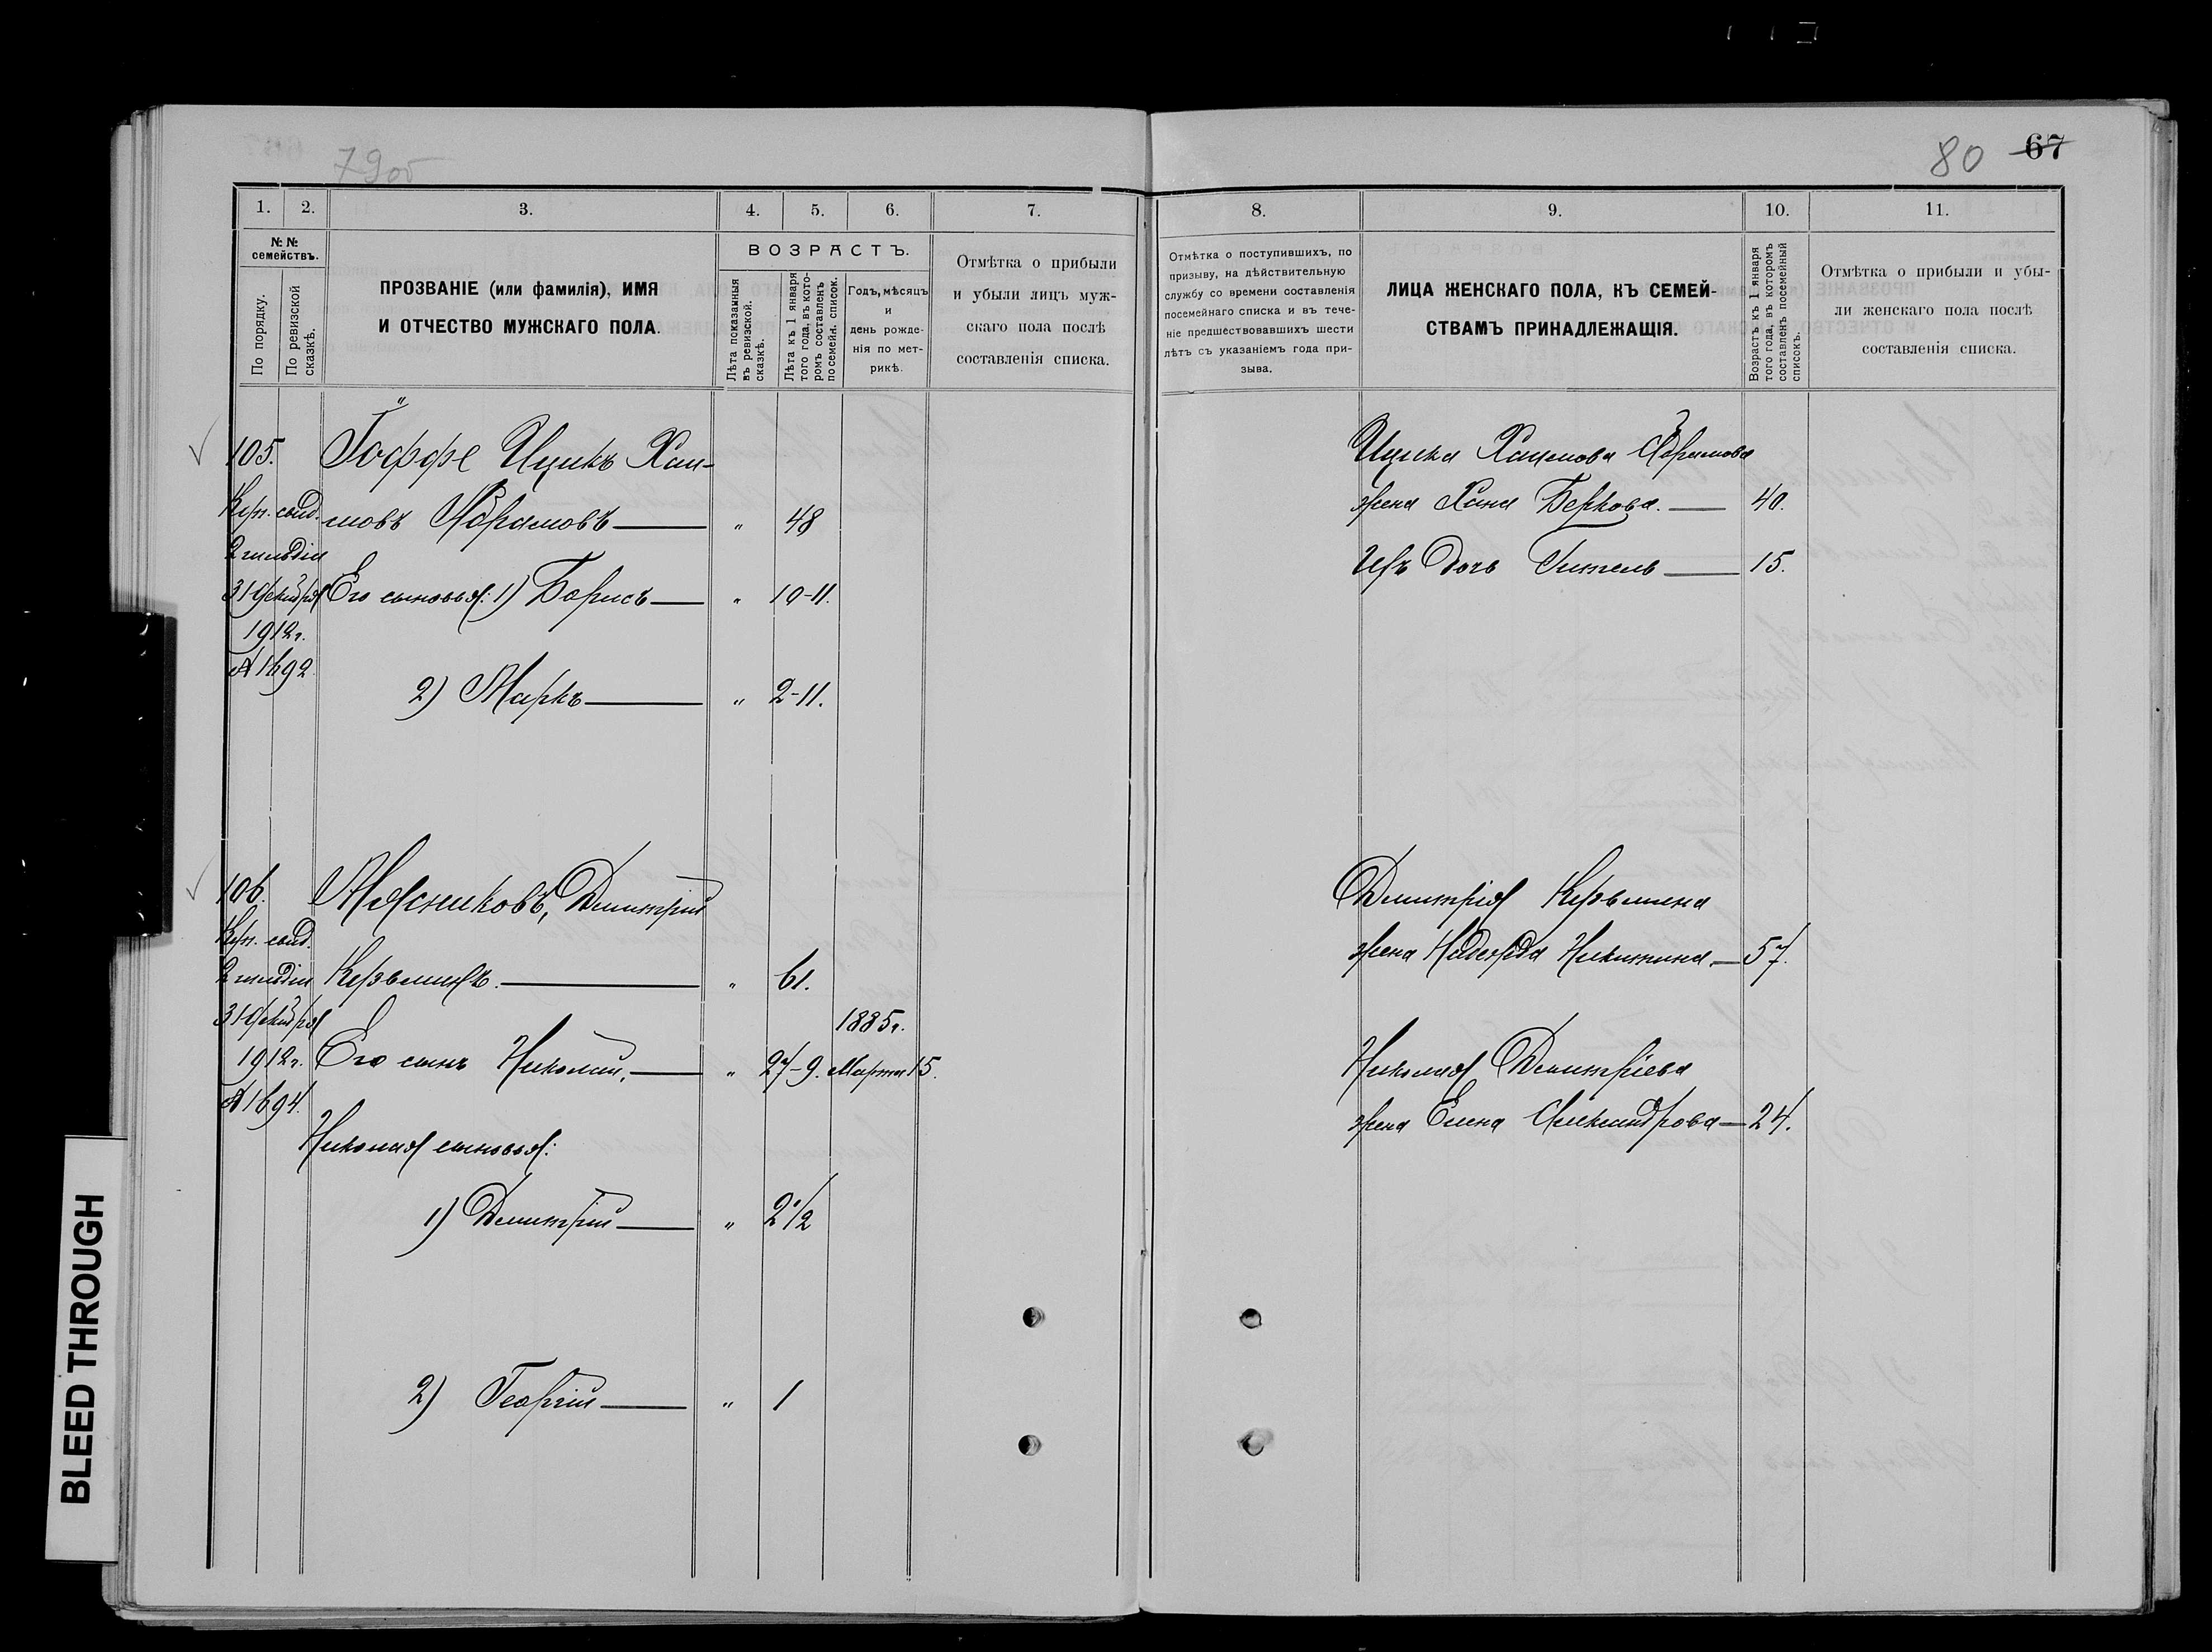 79об
80 67
1. 2. 3. 4. 5. 6. 7.
№№ семействъ.
По порядку.
По ревизской сказкѣ.
ПРОЗВАНІЕ (или фамилія), ИМЯ
И ОТЧЕСТВО МУЖСКАГО ПОЛА.
ВОЗРАСТЪ.
Лѣта показанныя въ ревизской сказкѣ.
Лѣта къ 1 января того года, въ которомъ составленъ посемейн. список.
Годъ, мѣсяцъ
и
день рожде-
нія по мет-
рикѣ.
Отмѣтка о прибыли
и убыли лицъ муж-
скаго пола послѣ
составленія списка.
105. Іоффе Ицикъ Хаи-
Куп. свид. мовъ Абрамовъ — " 48
2 гильдіи
31 Декабря Его сыновья: 1) Борисъ — " 10-11.
1912г.
№ 1692 2) Маркъ — " 2-11.
106. Мясниковъ, Димитрій
Куп. свид.
2 гильдіи Кузьминъ. — " 61.
31 Декабря 1885г.
1912г. Его сынъ Николай, — " 27-9. Марта 15.
№ 1694.
Николая сыновья:
1) Димитрій — " 2 1/2
2) Георгій — " 1
8. 9. 10. 11.
Отмѣтка о поступившихъ, по
призыву, на дѣйствительную
службу со времени составленія
посемейнаго списка и въ тече-
ніе предшествовавшихъ шести
лѣтъ съ указаніемъ года при-
зыва.
ЛИЦА ЖЕНСКАГО ПОЛА, КЪ СЕМЕЙ-
СТВАМЪ ПРИНАДЛЕЖАЩІЯ.
Возрастъ къ 1 января того года, въ которомъ составленъ посемейный списокъ.
Отмѣтка о прибыли и убы-
ли женскаго пола послѣ
составленія списка.
Ицика Хаимова Абрамова
жена Хана Беркова. — 40.
Ихъ дочь Гитель — 15.
Димитрія Кузьмина
жена Надежда Никитина — 57.
Николая Димитріева
жена Елена Александрова — 24.
BLEED THROUGH